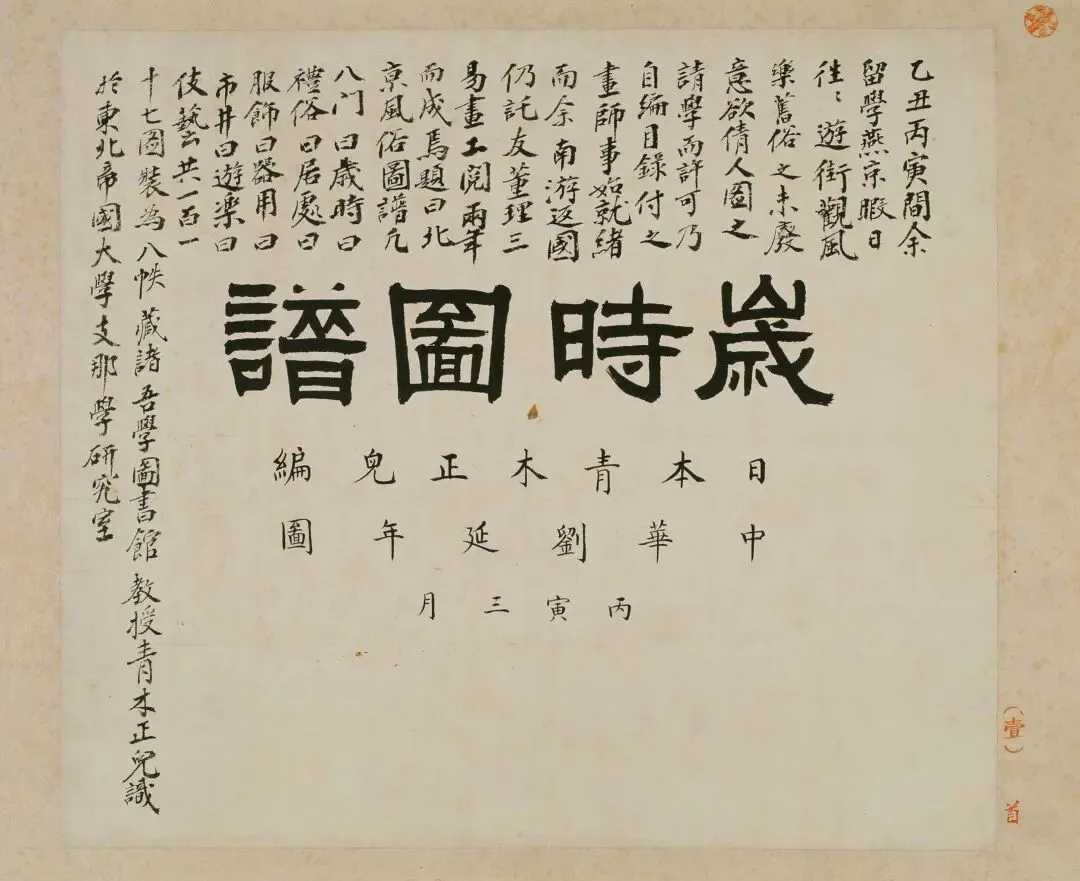 乙丑丙寅間余
留學燕京暇日
往〻遊街觀風
樂舊俗之未廢
意欲倩人圖之
請學而許可乃
自編目錄付之
畫師事始就緒
而余南游返國
仍託友董理三
易畫工閱兩年
而成焉題曰北
京風俗圖譜凡
八门曰歲時曰
禮俗曰居處曰
服飾曰器用曰
市井曰遊樂曰
伎藝共一百一
十七圖裝為八帙藏諸吾學圖書館教授青木正兒識
於東北帝國大學支那學研究室
歲時圖譜
日本青木正兒編
中華劉延年圖
丙寅三月
（壹）
首